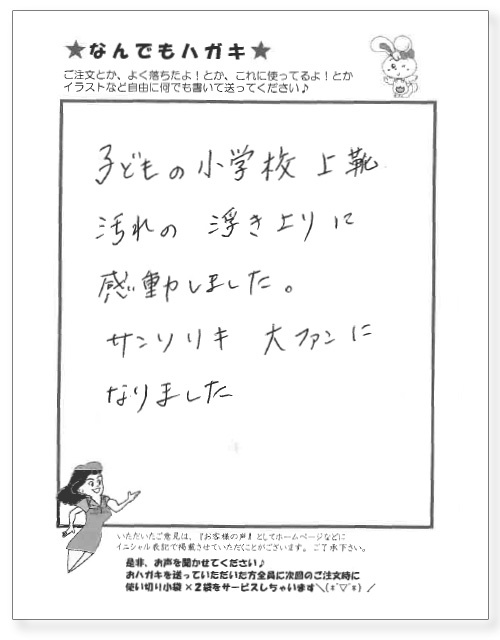 ★なんでもハガキ★
ご注文とか、よく落ちたよ！とか、これに使ってるよ！とか
イラストなど自由に何でも書いて送ってください♪
子どもの小学校 上靴
汚れの 浮き上りに
感動しました。
サンソリキ 大ファンに
なりました
いただいたご意見は、『お客様の声』としてホームページなどに
イニシャル表記で掲載させていただくことがございます。ご了承下さい。
是非、お声を聞かせてください♪
おハガキを送っていただいた方全員に次回のご注文時に
使い切り小袋×2袋をサービスしちゃいます＼(*´▽`*)／